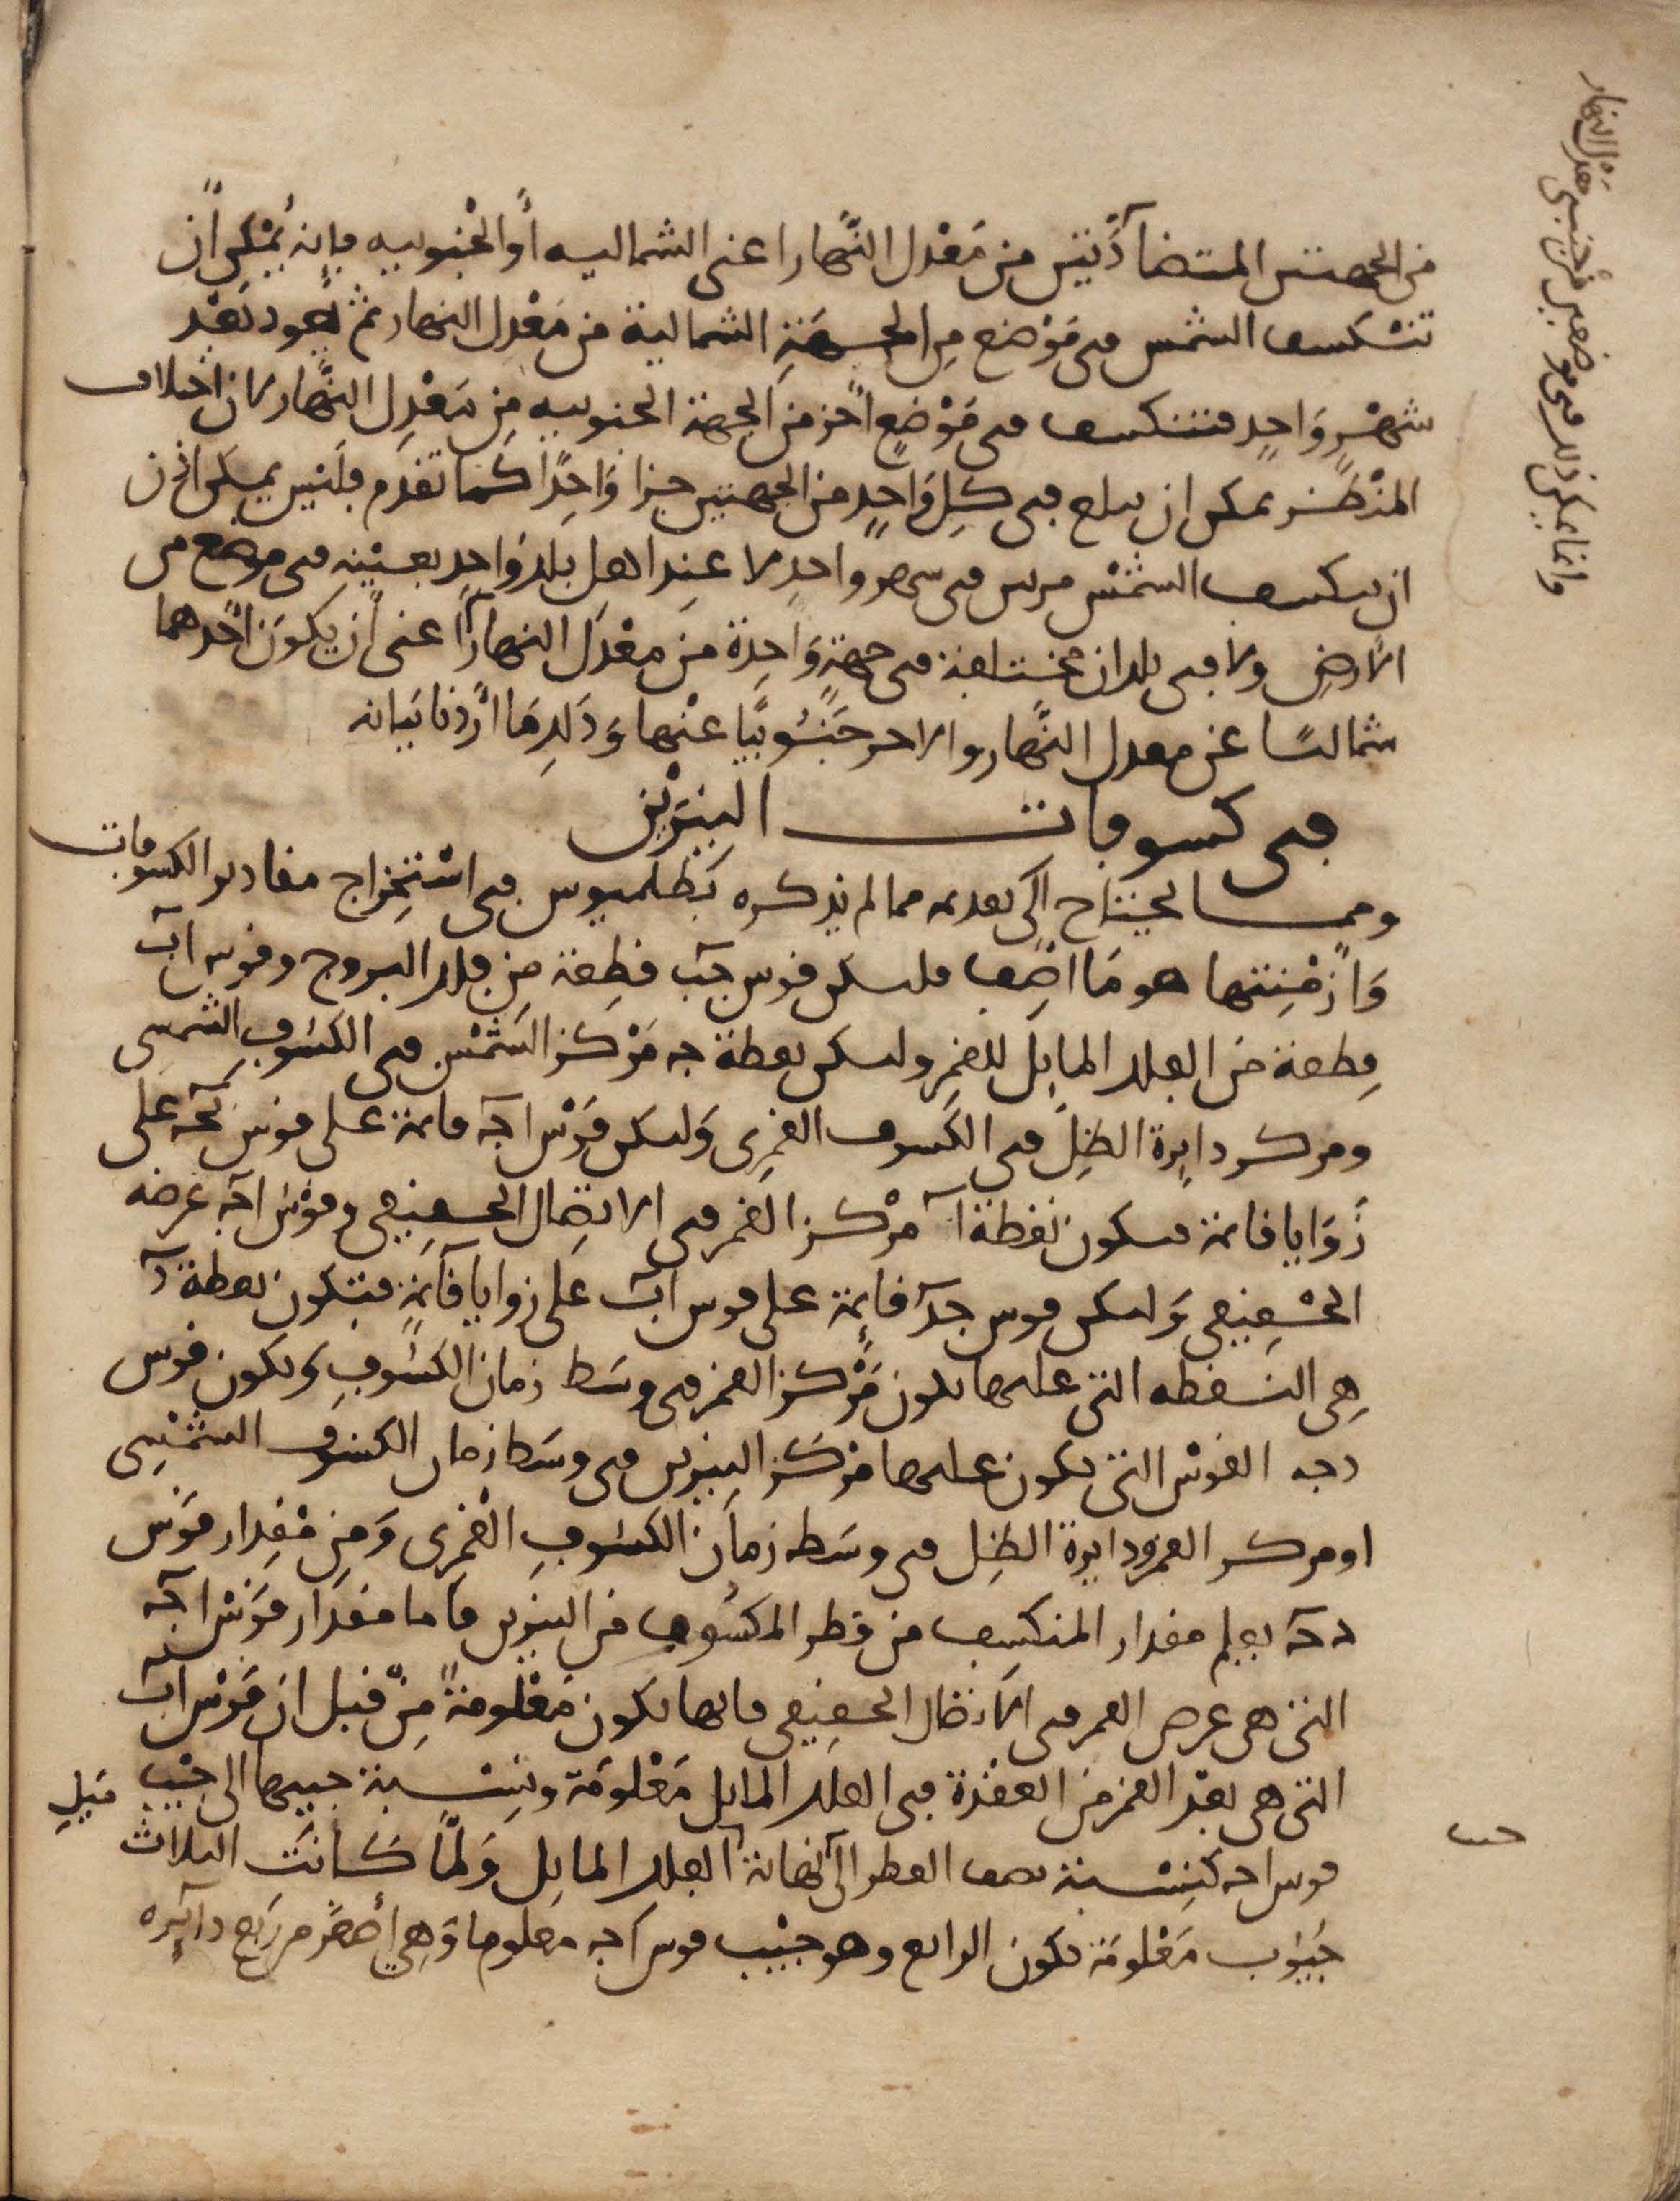 من الجهتين المتضادتين من معدل النهار اعنى الشماليه أو الجنوبيه فإنه يمكن أن
تنكسف الشمس فى موضع من الجهة الشمالية من معدل النهار ثم تعود بعد
شهر واحد فتنكسف فى موضع اخر من الجهة الجنوبيه من معدل النهار لان اختلاف
المنظر يمكن ان يبلغ فى كل واحد من الجهتين جزا واحدا كما تقدم فليس يمكن اذن
ان تنكسف الشمس مرتين فى شهر واحد لا عند اهل بلد واحد بعينه فى موضع من
الارض ولا فى بلدان مختلفة فى جهة واحدة من معدل النهار اعنى أن يكون احدهما
شماليا عن معدل النهار والاخر جنوبيا عنها وذلك ما أردنا بيانه
فى كسوفات النيرين
ومما يحتاج الى تقديمه مما لم يذكره بطلميوس فى استخراج مقادير الكسوفات
وأزمنتها هو ما اصف فلتكن قوس جب قطعة من فلك البروج وقوس اب
قطعة من الفلك المايل للقمر ولتكن نقطة جه مركز الشمس فى الكسوف الشمسى
ومركز دايرة الظل فى الكسوف القمرى ولتكن قوس اجه قايمة على قوس بجه على
زوايا قايمة فتكون نقطة ا مركز القمر فى الاتصال الحقيقى وقوس اجه عرضه
الحقيقى ولتكن قوس جد قايمة على قوس اب على زوايا قايمة فتكون نقطة د
هى النقطه التى عليها يكون مركز القمر فى وسط زمان الكسوف وتكون قوس
دجه القوس التى تكون عليها مركز النيرين فى وسط زمان الكسوف الشمسى
او مركز القمر ودايرة الظل فى وسط زمان الكسوف القمرى ومن مقدار قوس
دجه يعلم مقدار المنكسف من قطر المكسوف من النيرين فاما مقدار قوس اجه
التى هى عرض القمر فى الاتصال الحقيقى فانها تكون معلومة من قبل ان قوس اب
التى هى بعد القمر من العقدة فى الفلك المايل معلومة ونسبة جيبها الى جيب
قوس اجه كنسبة نصف القطر الى نهاية الفلك المايل ولما كانت الثلاث
جيوب معلومة تكون الرابع وهو جيب قوس اجه معلوما وهى أصغر من ربع دايره
ميل
جيب
وانما يمكن ذلك فى موضعين من جنبى معدل النهار